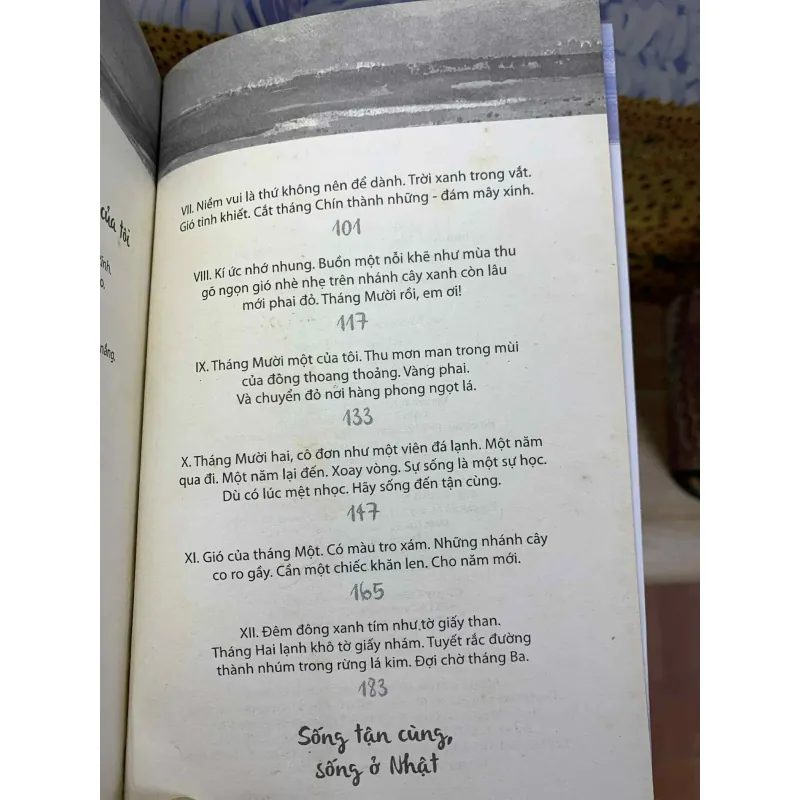 của tôi
nắng.
VII. Niềm vui là thứ không nên để dành. Trời xanh trong vắt.
Gió tinh khiết. Cắt tháng Chín thành những - đám mây xinh.
101
VIII. Kí ức nhớ nhung. Buồn một nỗi khẽ như mùa thu
gõ ngọn gió nhè nhẹ trên nhánh cây xanh còn lâu
mới phai đỏ. Tháng Mười rồi, em ơi!
117
IX. Tháng Mười một của tôi. Thu mơn man trong mùi
của đông thoang thoảng. Vàng phai.
Và chuyển đỏ nơi hàng phong ngọt lá.
133
X. Tháng Mười hai, cô đơn như một viên đá lạnh. Một năm
qua đi. Một năm lại đến. Xoay vòng. Sự sống là một sự học.
Dù có lúc mệt nhọc. Hãy sống đến tận cùng.
147
XI. Gió của tháng Một. Có màu tro xám. Những nhánh cây
co ro gầy. Cần một chiếc khăn len. Cho năm mới.
165
XII. Đêm đông xanh tím như tờ giấy than.
Tháng Hai lạnh khô tờ giấy nhám. Tuyết rắc đường
thành nhúm trong rừng lá kim. Đợi chờ tháng Ba.
183
Sống tận cùng,
sống ở Nhật